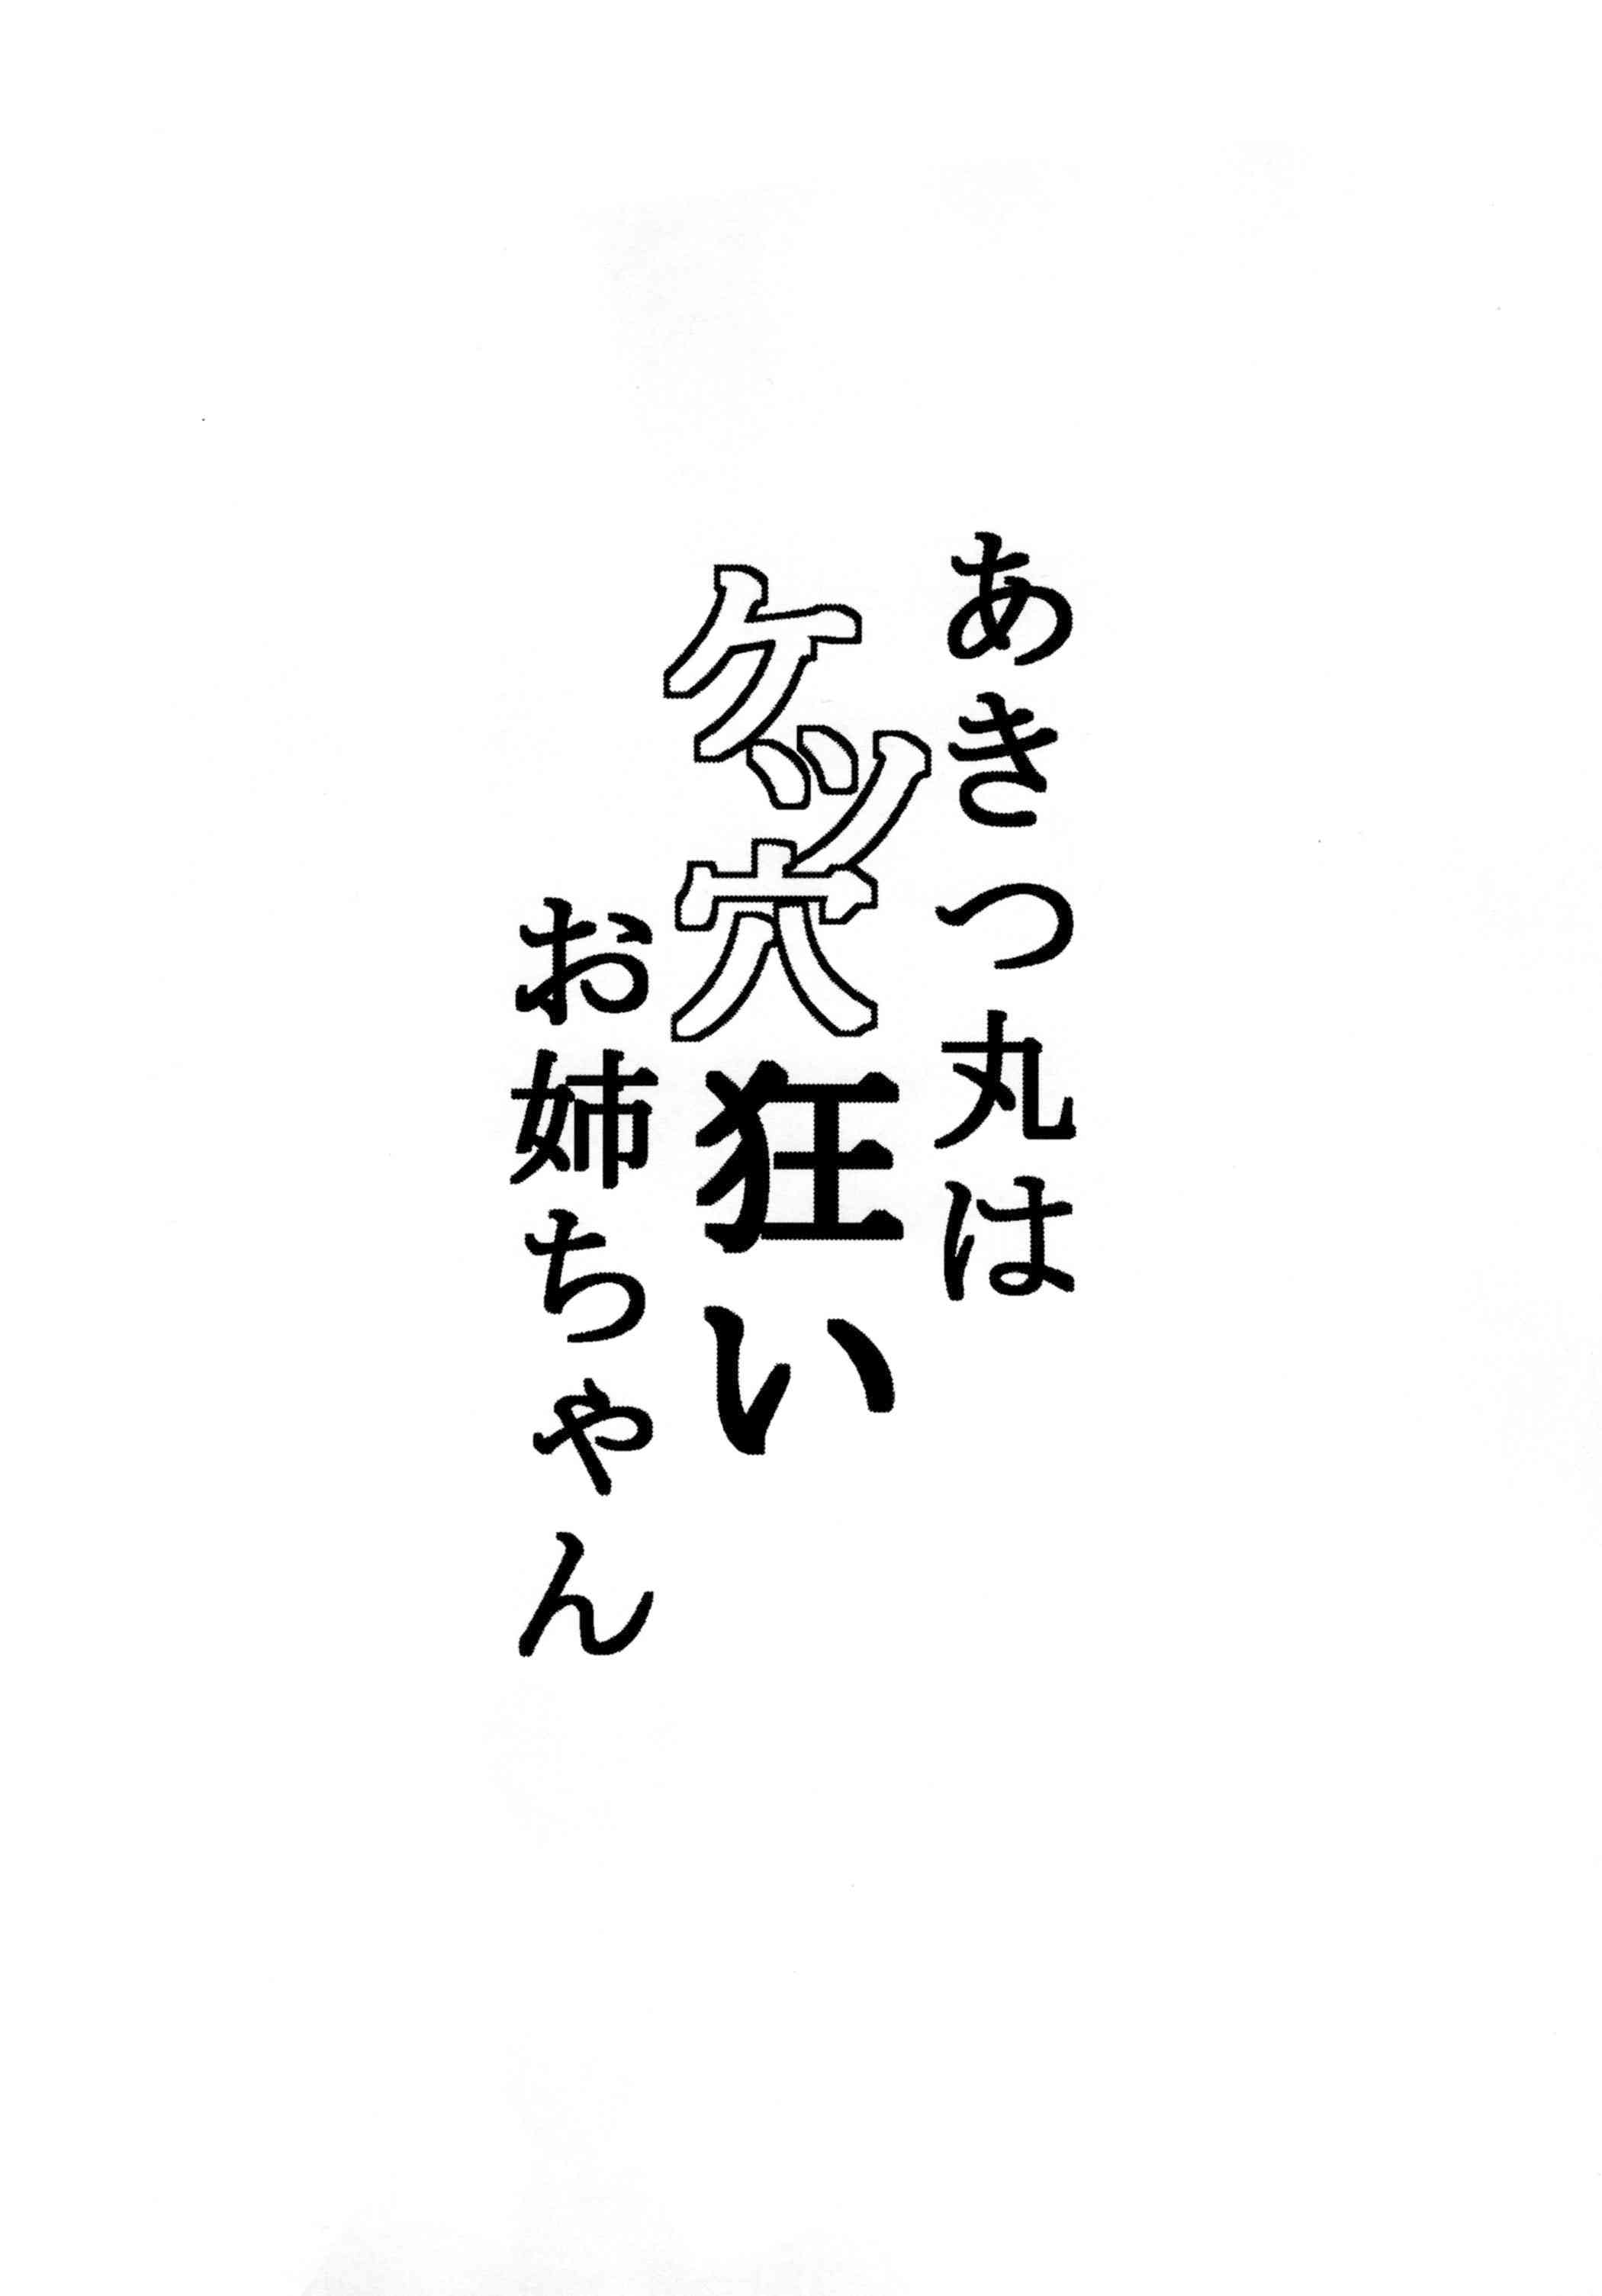 あきつ丸は
ケツ穴狂い
お姉ちゃん